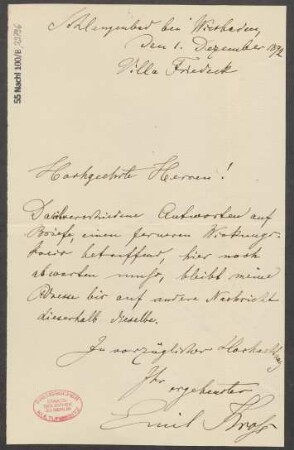 Schlangenbad bei Wiesbaden,
den 1. Dezember 1892
Villa Friedeck
Hochgeehrte Herren!
Da ich verschiedene Antworten auf
Briefe, einen ferneren Wirkungs-
kreis betreffend, hier noch
abwarten muss, bleibt meine
Adresse bis auf andere Nachricht
dieserhalb dieselbe.
In vorzüglicher Hochachtung
Ihr ergebenster
Emil
55 Nachl 100/B